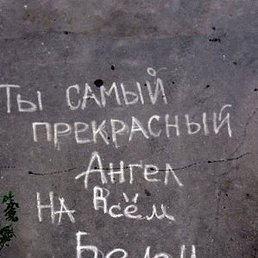 Ты САМЫЙ
ПРЕКРАСНЫЙ
АНГЕЛ
НА Всём